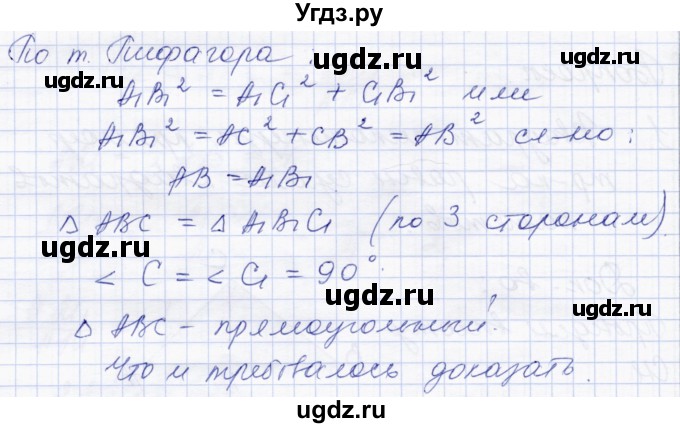 Угдз.ру
По т. Пифагора :
ugdz.ru
ugdz.ru
A₁B₁² = A₁C₁² + C₁B₁² или
A₁B₁² = AC² + CB² = AB² сл-но :
AB = A₁B₁
ugdz.ru
Δ ABC = Δ A₁B₁C₁ (по 3 сторонам)
ugdz.ru
ugdz.ru
< C = < C₁ = 90°.
ugdz.ru
Δ ABC - прямоугольный.
ugdz.ru
Что и требовалось доказать.
ugdz.ru
ugdz.ru